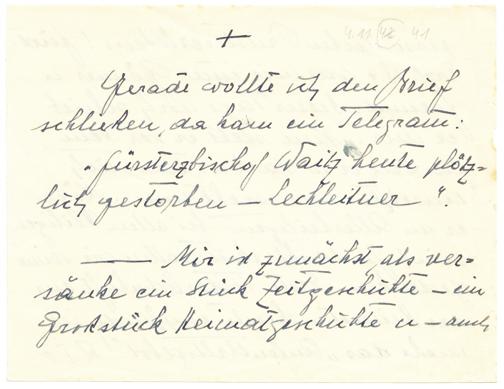 4.11.42 41
+
Gerade wollte ich den Brief
schließen, da kam ein Telegram:
„Fürsterzbischof Waitz heute plötz-
lich gestorben – Lechleitner“.
— Mir ist zunächst als ver-
sänke ein Stück Zeitgeschichte – ein
Großstück Heimatgeschichte u – auch